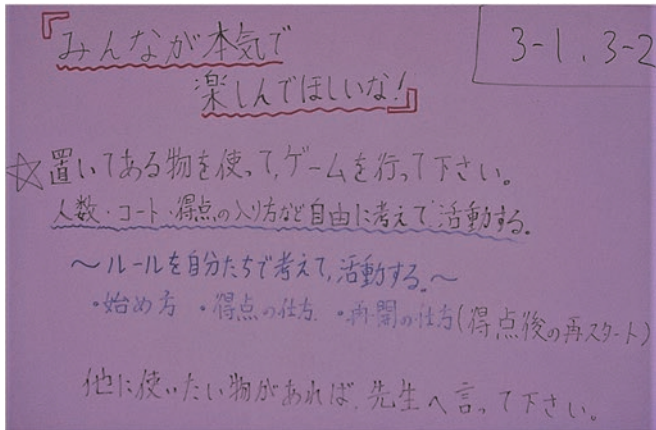 『みんなが本気で
楽しんでほしいな!』
3-1、3-2
☆置いてある物を使って、ゲームを行って下さい。
人数・コート・得点の入り方など自由に考えて活動する。
～ルールを自分たちで考えて、活動する。～
・始め方 ・得点の仕方 ・再開の仕方(得点後の再スタート)
他に使いたい物があれば、先生へ言って下さい。